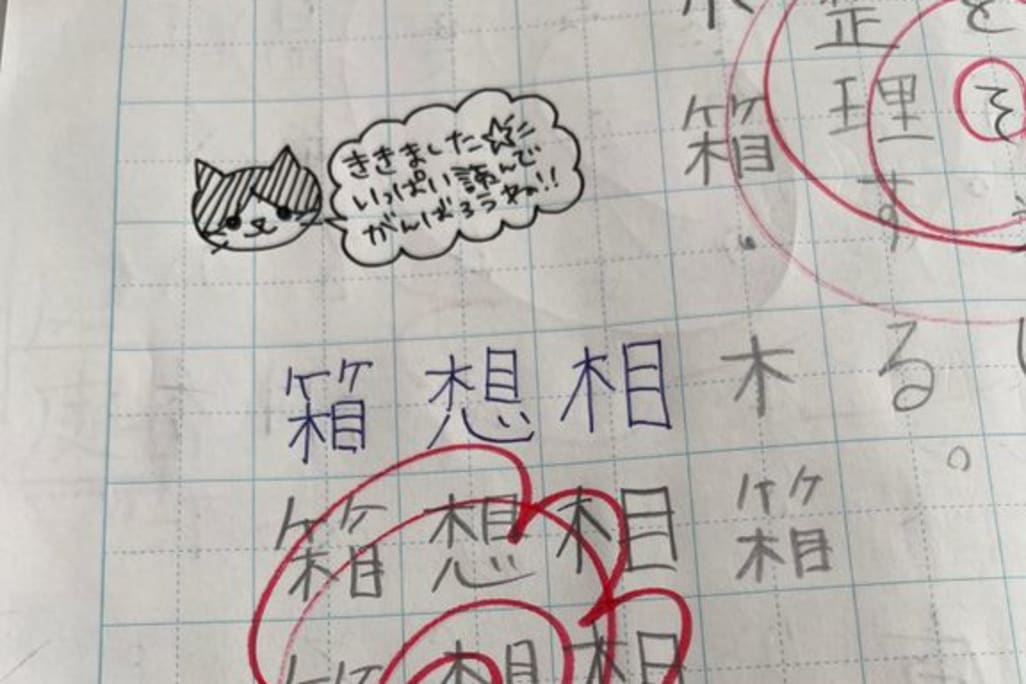 をそ
整理する。
箱
木箱
相相相
想想想
箱箱箱
ききました☆
いっぱい読んで
がんばろうね!!